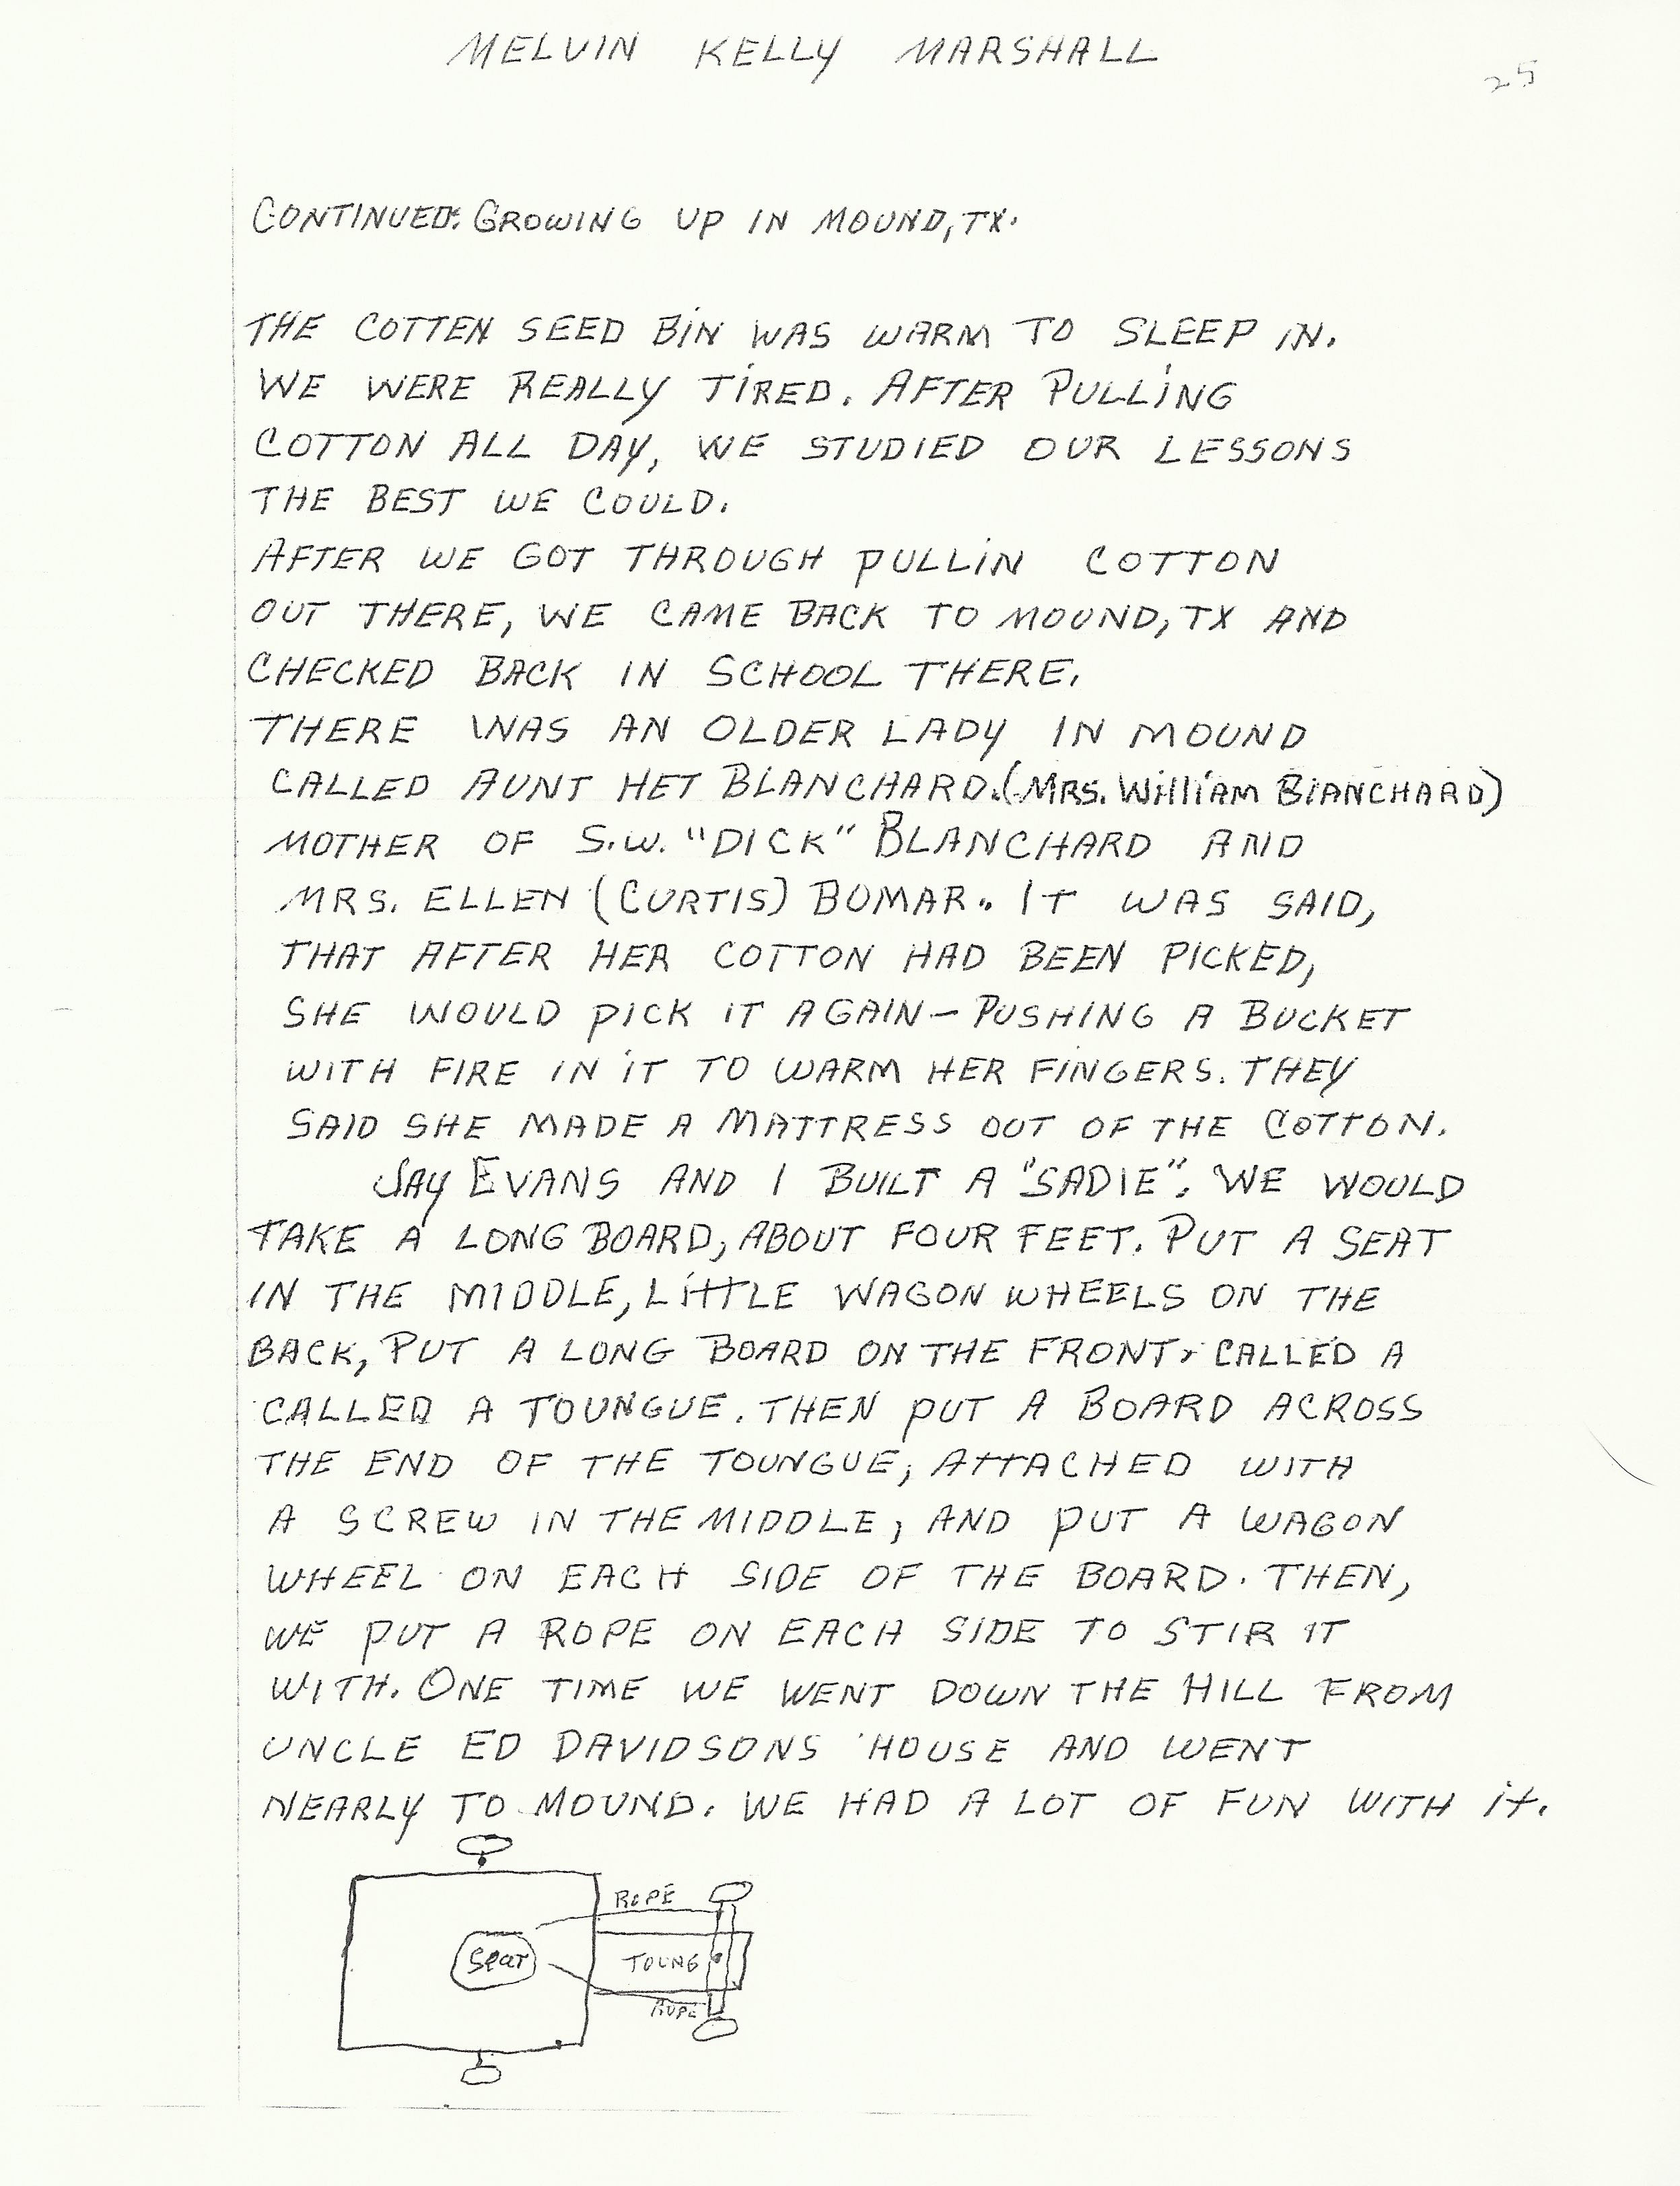 MELVIN KELLY MARSHALL
25
CONTINUED: GROWING UP IN MOUND, TX.
THE COTTEN SEED BIN WAS WARM TO SLEEP IN.
WE WERE REALLY TIRED. AFTER PULLING
COTTON ALL DAY, WE STUDIED OUR LESSONS
THE BEST WE COULD.
AFTER WE GOT THROUGH PULLIN COTTON
OUT THERE, WE CAME BACK TO MOUND, TX AND
CHECKED BACK IN SCHOOL THERE.
THERE WAS AN OLDER LADY IN MOUND
CALLED AUNT HET BLANCHARD. (MRS. WILLIAM BLANCHARD)
MOTHER OF S.W. "DICK" BLANCHARD AND
MRS. ELLEN (CURTIS) BOMAR. IT WAS SAID,
THAT AFTER HER COTTON HAD BEEN PICKED,
SHE WOULD PICK IT AGAIN - PUSHING A BUCKET
WITH FIRE IN IT TO WARM HER FINGERS. THEY
SAID SHE MADE A MATTRESS OUT OF THE COTTON.
JAY EVANS AND I BUILT A "SADIE". WE WOULD
TAKE A LONG BOARD, ABOUT FOUR FEET. PUT A SEAT
IN THE MIDDLE, LITTLE WAGON WHEELS ON THE
BACK, PUT A LONG BOARD ON THE FRONT, CALLED A
CALLED A TOUNGUE. THEN PUT A BOARD ACROSS
THE END OF THE TOUNGUE, ATTACHED WITH
A SCREW IN THE MIDDLE, AND PUT A WAGON
WHEEL ON EACH SIDE OF THE BOARD. THEN,
WE PUT A ROPE ON EACH SIDE TO STIR IT
WITH. ONE TIME WE WENT DOWN THE HILL FROM
UNCLE ED DAVIDSONS HOUSE AND WENT
NEARLY TO MOUND. WE HAD A LOT OF FUN WITH IT.
ROPE
SEAT
TOUNG
ROPE